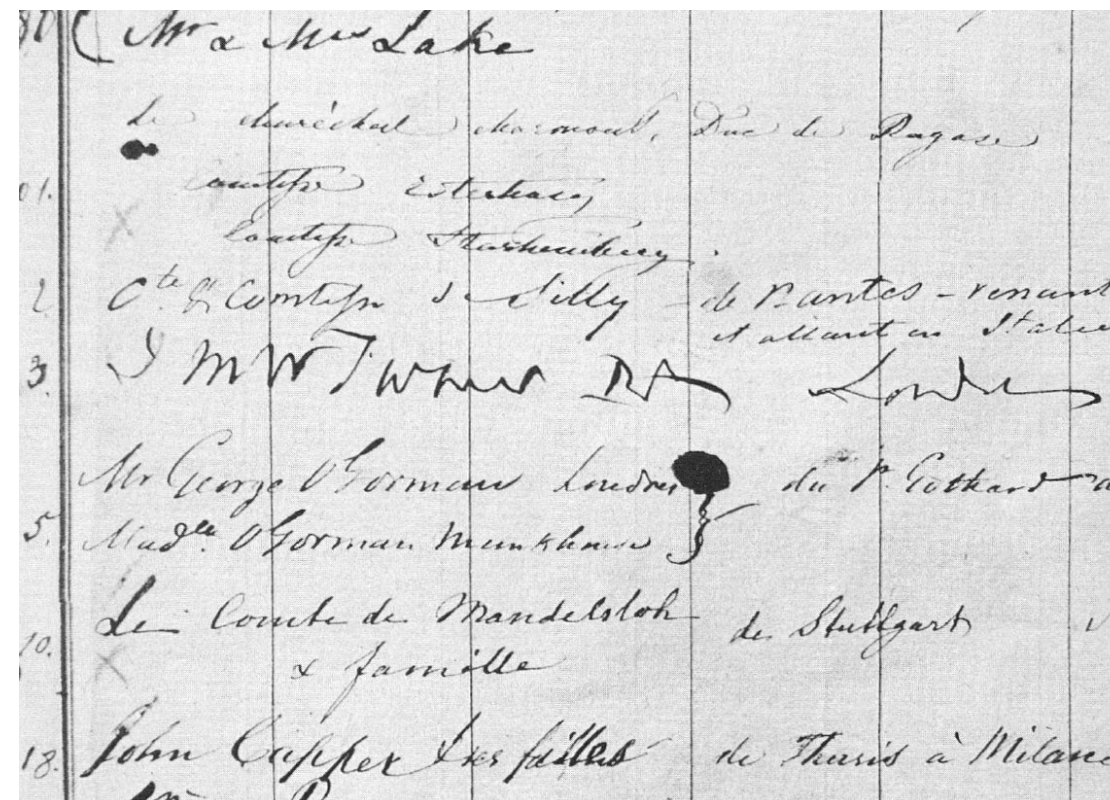 30 Mr & Mrs Lake
Le Maréchal Marmont, Duc de Raguse
01. Comtesse Esterhazy
Comtesse Starhemberg.
2 Cte & Comtesse de Silly - de Nantes - venant
et allant en Italie
3. J M W Turner RA London
Mr George O'Gorman Londres du St. Gothard
5. Madlle. O'Gorman Munkhouse
10. Le Comte de Mandelsloh de Stuttgart
& famille
18. John Capper & ses filles de Thusis à Milano